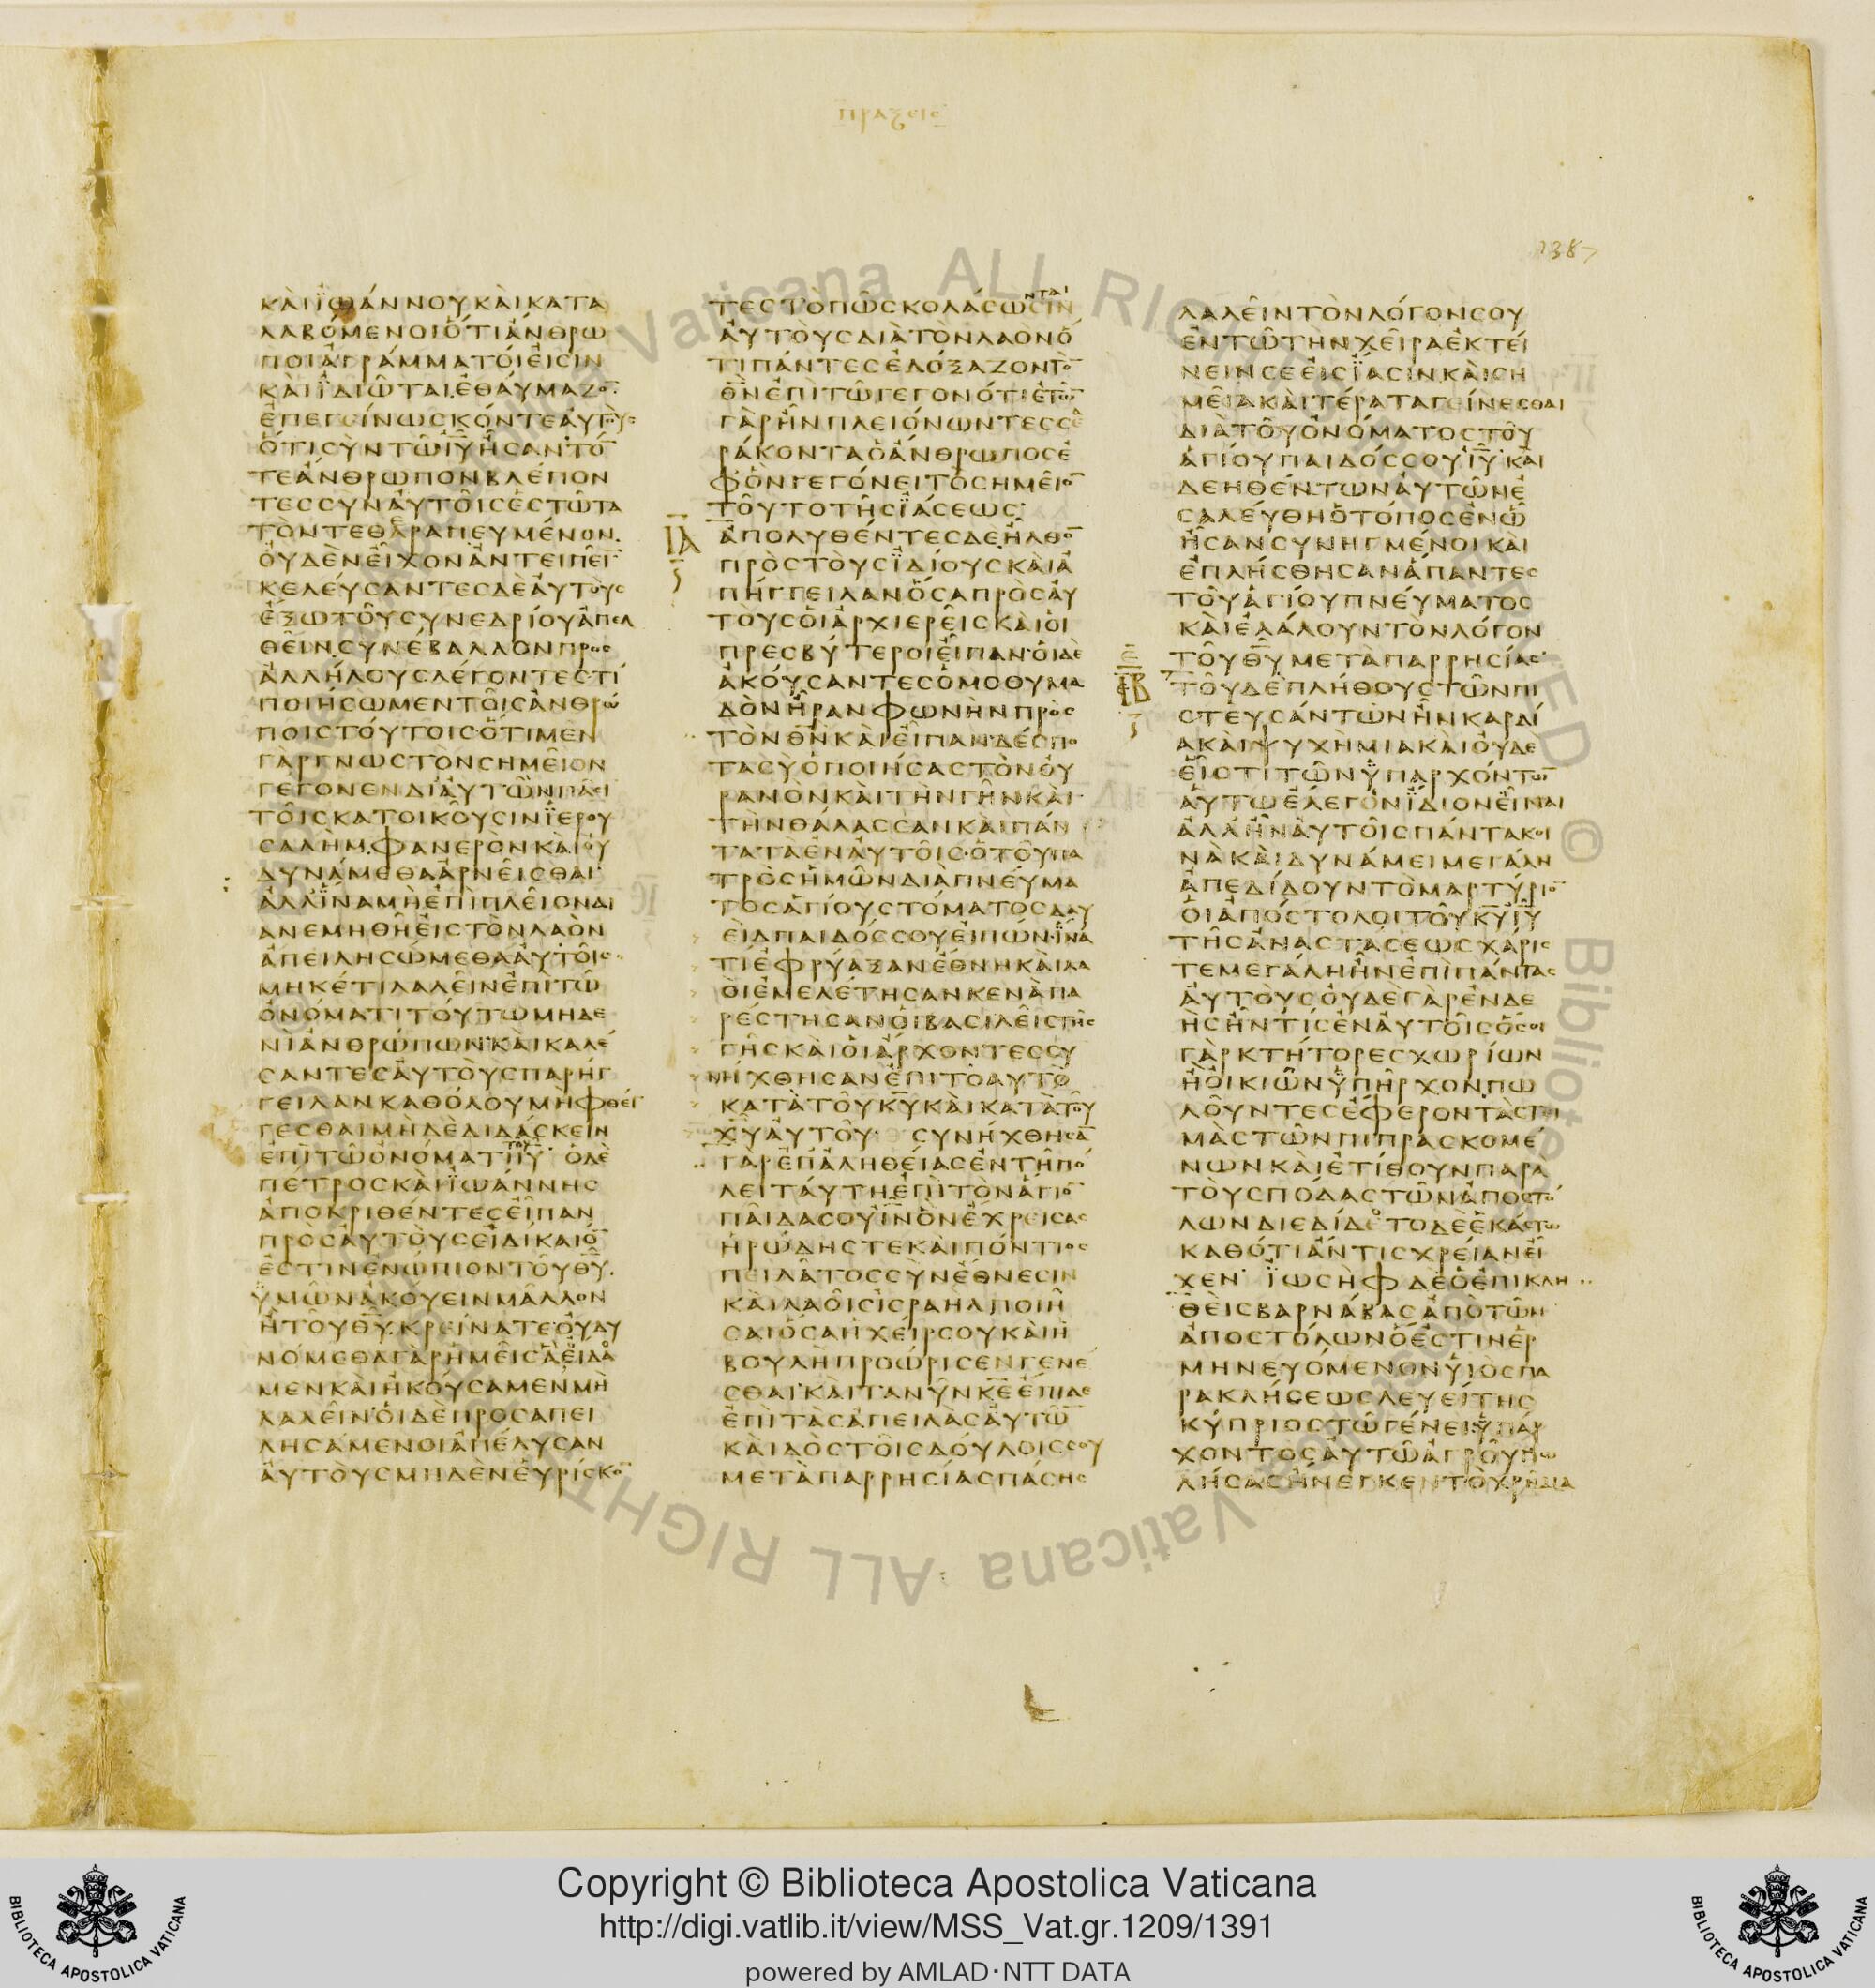 πραξεις
1387
ΚΑΙΪΩΑΝΝΟΥΚΑΙΚΑΤΑ
ΛΑΒΟΜΕΝΟΙΟΤΙΑΝΘΡΩ
ΠΟΙΑΓΡΑΜΜΑΤΟΙΕΙΣΙΝ
ΚΑΙΪΔΙΩΤΑΙ.ΕΘΑΥΜΑΖΟ̅
ΕΠΕΓΕΙΝΩΣΚΟΝΤΕΑΥΤΟΥΣ
ΟΤΙΣΥΝΤΩΙ̅Υ̅ΗΣΑΝΤΟ̅
ΤΕΑΝΘΡΩΠΟΝΒΛΕΠΟΝ
ΤΕΣΣΥΝΑΥΤΟΙΣΕΣΤΩΤΑ
ΤΟΝΤΕΘΕΡΑΠΕΥΜΕΝΟΝ.
ΟΥΔΕΝΕΙΧΟΝΑΝΤΕΙΠΕΙ̅
ΚΕΛΕΥΣΑΝΤΕΣΔΕΑΥΤΟΥΣ
ΕΞΩΤΟΥΣΥΝΕΔΡΙΟΥΑΠΕΛ
ΘΕΙΝ.ΣΥΝΕΒΑΛΛΟΝΠΡΟΣ
ΑΛΛΗΛΟΥΣΛΕΓΟΝΤΕΣ·ΤΙ
ΠΟΙΗΣΩΜΕΝΤΟΙΣΑΝΘΡΩ
ΠΟΙΣΤΟΥΤΟΙΣ·ΟΤΙΜΕΝ
ΓΑΡΓΝΩΣΤΟΝΣΗΜΕΙΟΝ
ΓΕΓΟΝΕΝΔΙΑΥΤΩΝΠΑΣΙ
ΤΟΙΣΚΑΤΟΙΚΟΥΣΙΝΪΕΡΟΥ
ΣΑΛΗΜ.ΦΑΝΕΡΟΝΚΑΙΟΥ
ΔΥΝΑΜΕΘΑΑΡΝΕΙΣΘΑΙ·
ΑΛΛΪΝΑΜΗΕΠΙΠΛΕΙΟΝΔΙ
ΑΝΕΜΗΘΗΕΙΣΤΟΝΛΑΟΝ
ΑΠΕΙΛΗΣΩΜΕΘΑΑΥΤΟΙΣ
ΜΗΚΕΤΙΛΑΛΕΙΝΕΠΙΤΩ
ΟΝΟΜΑΤΙΤΟΥΤΩΜΗΔΕ
ΝΙΑΝΘΡΩΠΩΝ·ΚΑΙΚΑΛΕ
ΣΑΝΤΕΣΑΥΤΟΥΣΠΑΡΗΓ
ΓΕΙΛΑΝΚΑΘΟΛΟΥΜΗΦΘΕΓ
ΓΕΣΘΑΙΜΗΔΕΔΙΔΑΣΚΕΙΝ
ΕΠΙΤΩΟΝΟΜΑΤΙΤΟΥΙ̅Υ̅· ΟΔΕ
ΠΕΤΡΟΣΚΑΙΪΩΑΝΝΗΣ
ΑΠΟΚΡΙΘΕΝΤΕΣΕΙΠΑΝ
ΠΡΟΣΑΥΤΟΥΣΕΙΔΙΚΑΙΟ̅
ΕΣΤΙΝΕΝΩΠΙΟΝΤΟΥΘ̅Υ̅.
ΫΜΩΝΑΚΟΥΕΙΝΜΑΛΛΟΝ
ΗΤΟΥΘ̅Υ̅.ΚΡΕΙΝΑΤΕ·ΟΥΔΥ
ΝΟΜΕΘΑΓΑΡΗΜΕΙΣΑΕΙΔΑ
ΜΕΝΚΑΙΗΚΟΥΣΑΜΕΝΜΗ
ΛΑΛΕΙΝ·ΟΙΔΕΠΡΟΣΑΠΕΙ
ΛΗΣΑΜΕΝΟΙΑΠΕΛΥΣΑΝ
ΑΥΤΟΥΣΜΗΔΕΝΕΥΡΙΣΚΟ̅
ΤΕΣΤΟΠΩΣΚΟΛΑΣΩΣΙΝ
ΑΥΤΟΥΣΔΙΑΤΟΝΛΑΟΝΟ
ΤΙΠΑΝΤΕΣΕΔΟΞΑΖΟΝΤΟ̅
Θ̅Ν̅ΕΠΙΤΩΓΕΓΟΝΟΤΙΕΤΩ̅
ΓΑΡΗΝΠΛΕΙΟΝΩΝΤΕΣΣΕ
ΡΑΚΟΝΤΑΟΑΝΘΡΩΠΟΣΕ
ΦΟΝΓΕΓΟΝΕΙΤΟΣΗΜΕΙΟ̅
ΤΟΥΤΟΤΗΣΪΑΣΕΩΣ·
ΙΑ
ΑΠΟΛΥΘΕΝΤΕΣΔΕΗΛΘΟ̅
ΠΡΟΣΤΟΥΣΪΔΙΟΥΣΚΑΙΑ
ΠΗΓΓΕΙΛΑΝΟΣΑΠΡΟΣΑΥ
ΤΟΥΣΟΙΑΡΧΙΕΡΕΙΣΚΑΙΟΙ
ΠΡΕΣΒΥΤΕΡΟΙΕΙΠΑΝ·ΟΙΔΕ
ΑΚΟΥΣΑΝΤΕΣΟΜΟΘΥΜΑ
ΔΟΝΗΡΑΝΦΩΝΗΝΠΡΟΣ
ΤΟΝΘ̅Ν̅ΚΑΙΕΙΠΑΝ·ΔΕΣΠΟ
ΤΑΣΥΟΠΟΙΗΣΑΣΤΟΝΟΥ
ΡΑΝΟΝΚΑΙΤΗΝΓΗΝΚΑΙ
ΤΗΝΘΑΛΑΣΣΑΝΚΑΙΠΑΝ
ΤΑΤΑΕΝΑΥΤΟΙΣ·ΟΤΟΥΠΑ
ΤΡΟΣΗΜΩΝΔΙΑΠΝΕΥΜΑ
ΤΟΣΑΓΙΟΥΣΤΟΜΑΤΟΣΔΑΥ
ΕΙΔΠΑΙΔΟΣΣΟΥΕΙΠΩΝ·ΪΝΑ
ΤΙΕΦΡΥΑΞΑΝΕΘΝΗΚΑΙΛΑ
ΟΙΕΜΕΛΕΤΗΣΑΝΚΕΝΑΠΑ
ΡΕΣΤΗΣΑΝΟΙΒΑΣΙΛΕΙΣΤΗΣ
ΓΗΣΚΑΙΟΙΑΡΧΟΝΤΕΣΣΥ
ΝΗΧΘΗΣΑΝΕΠΙΤΟΑΥΤΟ
ΚΑΤΑΤΟΥΚ̅Υ̅ΚΑΙΚΑΤΑΤΟΥ
Χ̅Υ̅ΑΥΤΟΥ· ΣΥΝΗΧΘΗΣΑ̅
ΓΑΡΕΠΑΛΗΘΕΙΑΣΕΝΤΗΠΟ
ΛΕΙΤΑΥΤΗ.ΕΠΙΤΟΝΑΓΙΟ̅
ΠΑΙΔΑΣΟΥΙ̅Ν̅ΟΝΕΧΡΕΙΣΑΣ
ΗΡΩΔΗΣΤΕΚΑΙΠΟΝΤΙΟΣ
ΠΕΙΛΑΤΟΣΣΥΝΕΘΝΕΣΙΝ
ΚΑΙΛΑΟΙΣΙΣΡΑΗΛΠΟΙΗ
ΣΑΙΟΣΑΗΧΕΙΡΣΟΥΚΑΙΗ
ΒΟΥΛΗΠΡΟΩΡΙΣΕΝΓΕΝΕ
ΣΘΑΙ·ΚΑΙΤΑΝΥΝΚ̅Ε̅ΕΠΙΔΕ
ΕΠΙΤΑΣΑΠΕΙΛΑΣΑΥΤΩ̅
ΚΑΙΔΟΣΤΟΙΣΔΟΥΛΟΙΣΣΟΥ
ΜΕΤΑΠΑΡΡΗΣΙΑΣΠΑΣΗΣ
ΛΑΛΕΙΝΤΟΝΛΟΓΟΝΣΟΥ
ΕΝΤΩΤΗΝΧΕΙΡΑΕΚΤΕΙ
ΝΕΙΝΣΕΕΙΣΪΑΣΙΝ.ΚΑΙΣΗ
ΜΕΙΑΚΑΙΤΕΡΑΤΑΓΕΙΝΕΣΘΑΙ
ΔΙΑΤΟΥΟΝΟΜΑΤΟΣΤΟΥ
ΑΓΙΟΥΠΑΙΔΟΣΣΟΥΙ̅Υ̅·ΚΑΙ
ΔΕΗΘΕΝΤΩΝΑΥΤΩΝΕ
ΣΑΛΕΥΘΗΟΤΟΠΟΣΕΝΩ
ΗΣΑΝΣΥΝΗΓΜΕΝΟΙΚΑΙ
ΕΠΛΗΣΘΗΣΑΝΑΠΑΝΤΕΣ
ΤΟΥΑΓΙΟΥΠΝΕΥΜΑΤΟΣ
ΚΑΙΕΛΑΛΟΥΝΤΟΝΛΟΓΟΝ
ΤΟΥΘ̅Υ̅ΜΕΤΑΠΑΡΡΗΣΙΑΣ·
ΙΒ
ΤΟΥΔΕΠΛΗΘΟΥΣΤΩΝΠΙ
ΣΤΕΥΣΑΝΤΩΝΗΝΚΑΡΔΙ
ΑΚΑΙΨΥΧΗΜΙΑΚΑΙΟΥΔΕ
ΕΙΣΤΙΤΩΝΫΠΑΡΧΟΝΤΩ̅
ΑΥΤΩΕΛΕΓΟΝΪΔΙΟΝΕΙΝΑΙ
ΑΛΛΗΝΑΥΤΟΙΣΠΑΝΤΑΚΟΙ
ΝΑΚΑΙΔΥΝΑΜΕΙΜΕΓΑΛΗ
ΑΠΕΔΙΔΟΥΝΤΟΜΑΡΤΥΡΙΟ̅
ΟΙΑΠΟΣΤΟΛΟΙΤΟΥΚ̅Υ̅Ι̅Υ̅
ΤΗΣΑΝΑΣΤΑΣΕΩΣΧΑΡΙΣ
ΤΕΜΕΓΑΛΗΗΝΕΠΙΠΑΝΤΑΣ
ΑΥΤΟΥΣΟΥΔΕΓΑΡΕΝΔΕ
ΗΣΗΝΤΙΣΕΝΑΥΤΟΙΣΟΣΟΙ
ΓΑΡΚΤΗΤΟΡΕΣΧΩΡΙΩΝ
ΗΟΙΚΙΩΝΫΠΗΡΧΟΝ.ΠΩ
ΛΟΥΝΤΕΣΕΦΕΡΟΝΤΑΣΤΕΙ
ΜΑΣΤΩΝΠΙΠΡΑΣΚΟΜΕ
ΝΩΝΚΑΙΕΤΙΘΟΥΝΠΑΡΑ
ΤΟΥΣΠΟΔΑΣΤΩΝΑΠΟΣΤΟ
ΛΩΝΔΙΕΔΙΔΕΤΟΔΕΕΚΑΣΤΩ
ΚΑΘΟΤΙΑΝΤΙΣΧΡΕΙΑΝΕΙ
ΧΕΝ· ΪΩΣΗΦΔΕΟΕΠΙΚΛΗ
ΘΕΙΣΒΑΡΝΑΒΑΣΑΠΟΤΩΝ
ΑΠΟΣΤΟΛΩΝΟΕΣΤΙΝΕΡ
ΜΗΝΕΥΟΜΕΝΟΝΥΙΟΣΠΑ
ΡΑΚΛΗΣΕΩΣΛΕΥΕΙΤΗΣ
ΚΥΠΡΙΟΣΤΩΓΕΝΕΙ·ΫΠΑΡ
ΧΟΝΤΟΣΑΥΤΩΑΓΡΟΥΠΩ
ΛΗΣΑΣΗΝΕΓΚΕΝΤΟΧΡΗΜΑ
Copyright © Biblioteca Apostolica Vaticana
http://digi.vatlib.it/view/MSS_Vat.gr.1209/1391
powered by AMLAD·NTT DATA
BIBLIOTECA APOSTOLICA VATICANA
BIBLIOTECA APOSTOLICA VATICANA